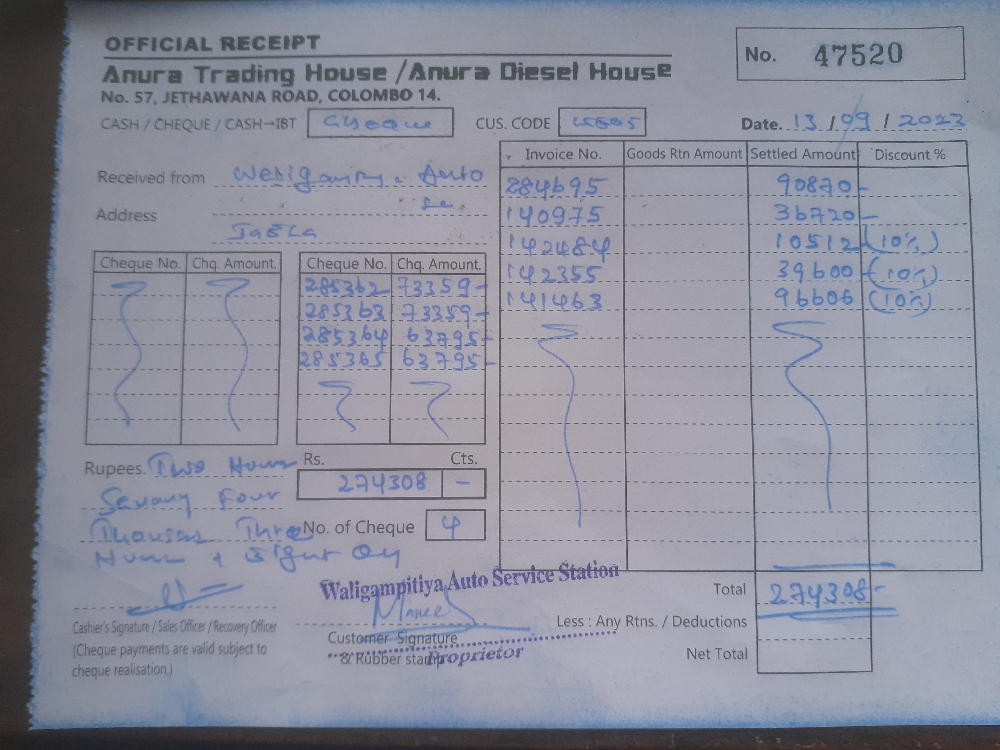 OFFICIAL RECEIPT
No. 47520
Anura Trading House /Anura Diesel House
No. 57, JETHAWANA ROAD, COLOMBO 14.
CASH / CHEQUE / CASH→IBT Cheque CUS. CODE Date. 13 / 09 / 2023
Invoice No. Goods Rtn Amount Settled Amount Discount %
Received from Auto
284695 90870-
Address
140975 36720-
JaEla
142484 10512 (10%)
Cheque No. Chq. Amount. Cheque No. Chq. Amount.
142355 39600 (10%)
285362 73359-
141463 96606 (10%)
285363 73359-
285364 63795-
285365 63795-
Rupees. Two Rs. Cts.
274308 -
Four
No. of Cheque 4
Waligampitiya Auto Service Station
Total 274308-
Cashier's Signature / Sales Officer / Recovery Officer
Less : Any Rtns. / Deductions
Customer Signature
(Cheque payments are valid subject to
& Rubber stamp Proprietor
Net Total
cheque realisation.)